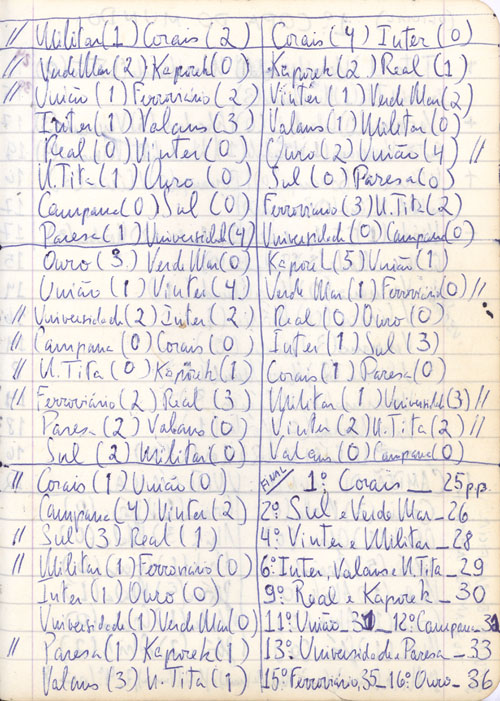 // Militar (1) Corais (2)
// Verde Mar (2) Kaporek (0)
// União (1) Ferroviário (2)
Inter (1) Valans (3)
Real (0) Vinter (0)
U. Tita (1) Ouro (0)
Campana (0) Sul (0)
Paresa (1) Universidade (4)
Ouro (3) Verde Mar (0)
União (1) Vinter (4)
// Universidade (2) Inter (2)
// Campana (0) Corais (0)
// U. Tita (0) Kaporek (1)
// Ferroviário (2) Real (3)
Paresa (2) Valans (0)
Sul (2) Militar (0)
// Corais (1) União (0)
Campana (4) Vinter (2)
// Sul (3) Real (1)
// Militar (1) Ferroviário (0)
Inter (1) Ouro (0)
Universidade (1) Verde Mar (0)
// Paresa (1) Kaporek (1)
Valans (3) U. Tita (1)
Corais (4) Inter (0)
Kaporek (2) Real (1)
Vinter (1) Verde Mar (2)
Valans (1) Militar (0)
Ouro (2) União (4) //
Sul (0) Paresa (0)
Ferroviário (3) U. Tita (2)
Universidade (0) Campana (0)
Kaporek (5) União (1)
Verde Mar (1) Ferroviário (0) //
Real (0) Ouro (0)
Inter (1) Sul (3)
Corais (1) Paresa (0)
Militar (1) Universidad (3) //
Vinter (2) U. Tita (2) //
Valans (0) Campana (0)
FINAL 1º Corais _ 25 pp.
2º Sul e Verde Mar _ 26
4º Vinter e Militar _ 28
6º Inter, Valans e U. Tita _ 29
9º Real e Kaporek _ 30
11º União _ 31 _ 12º Campana 31
13º Universidade e Paresa _ 33
15º Ferroviário, 35 _ 16º Ouro _ 36